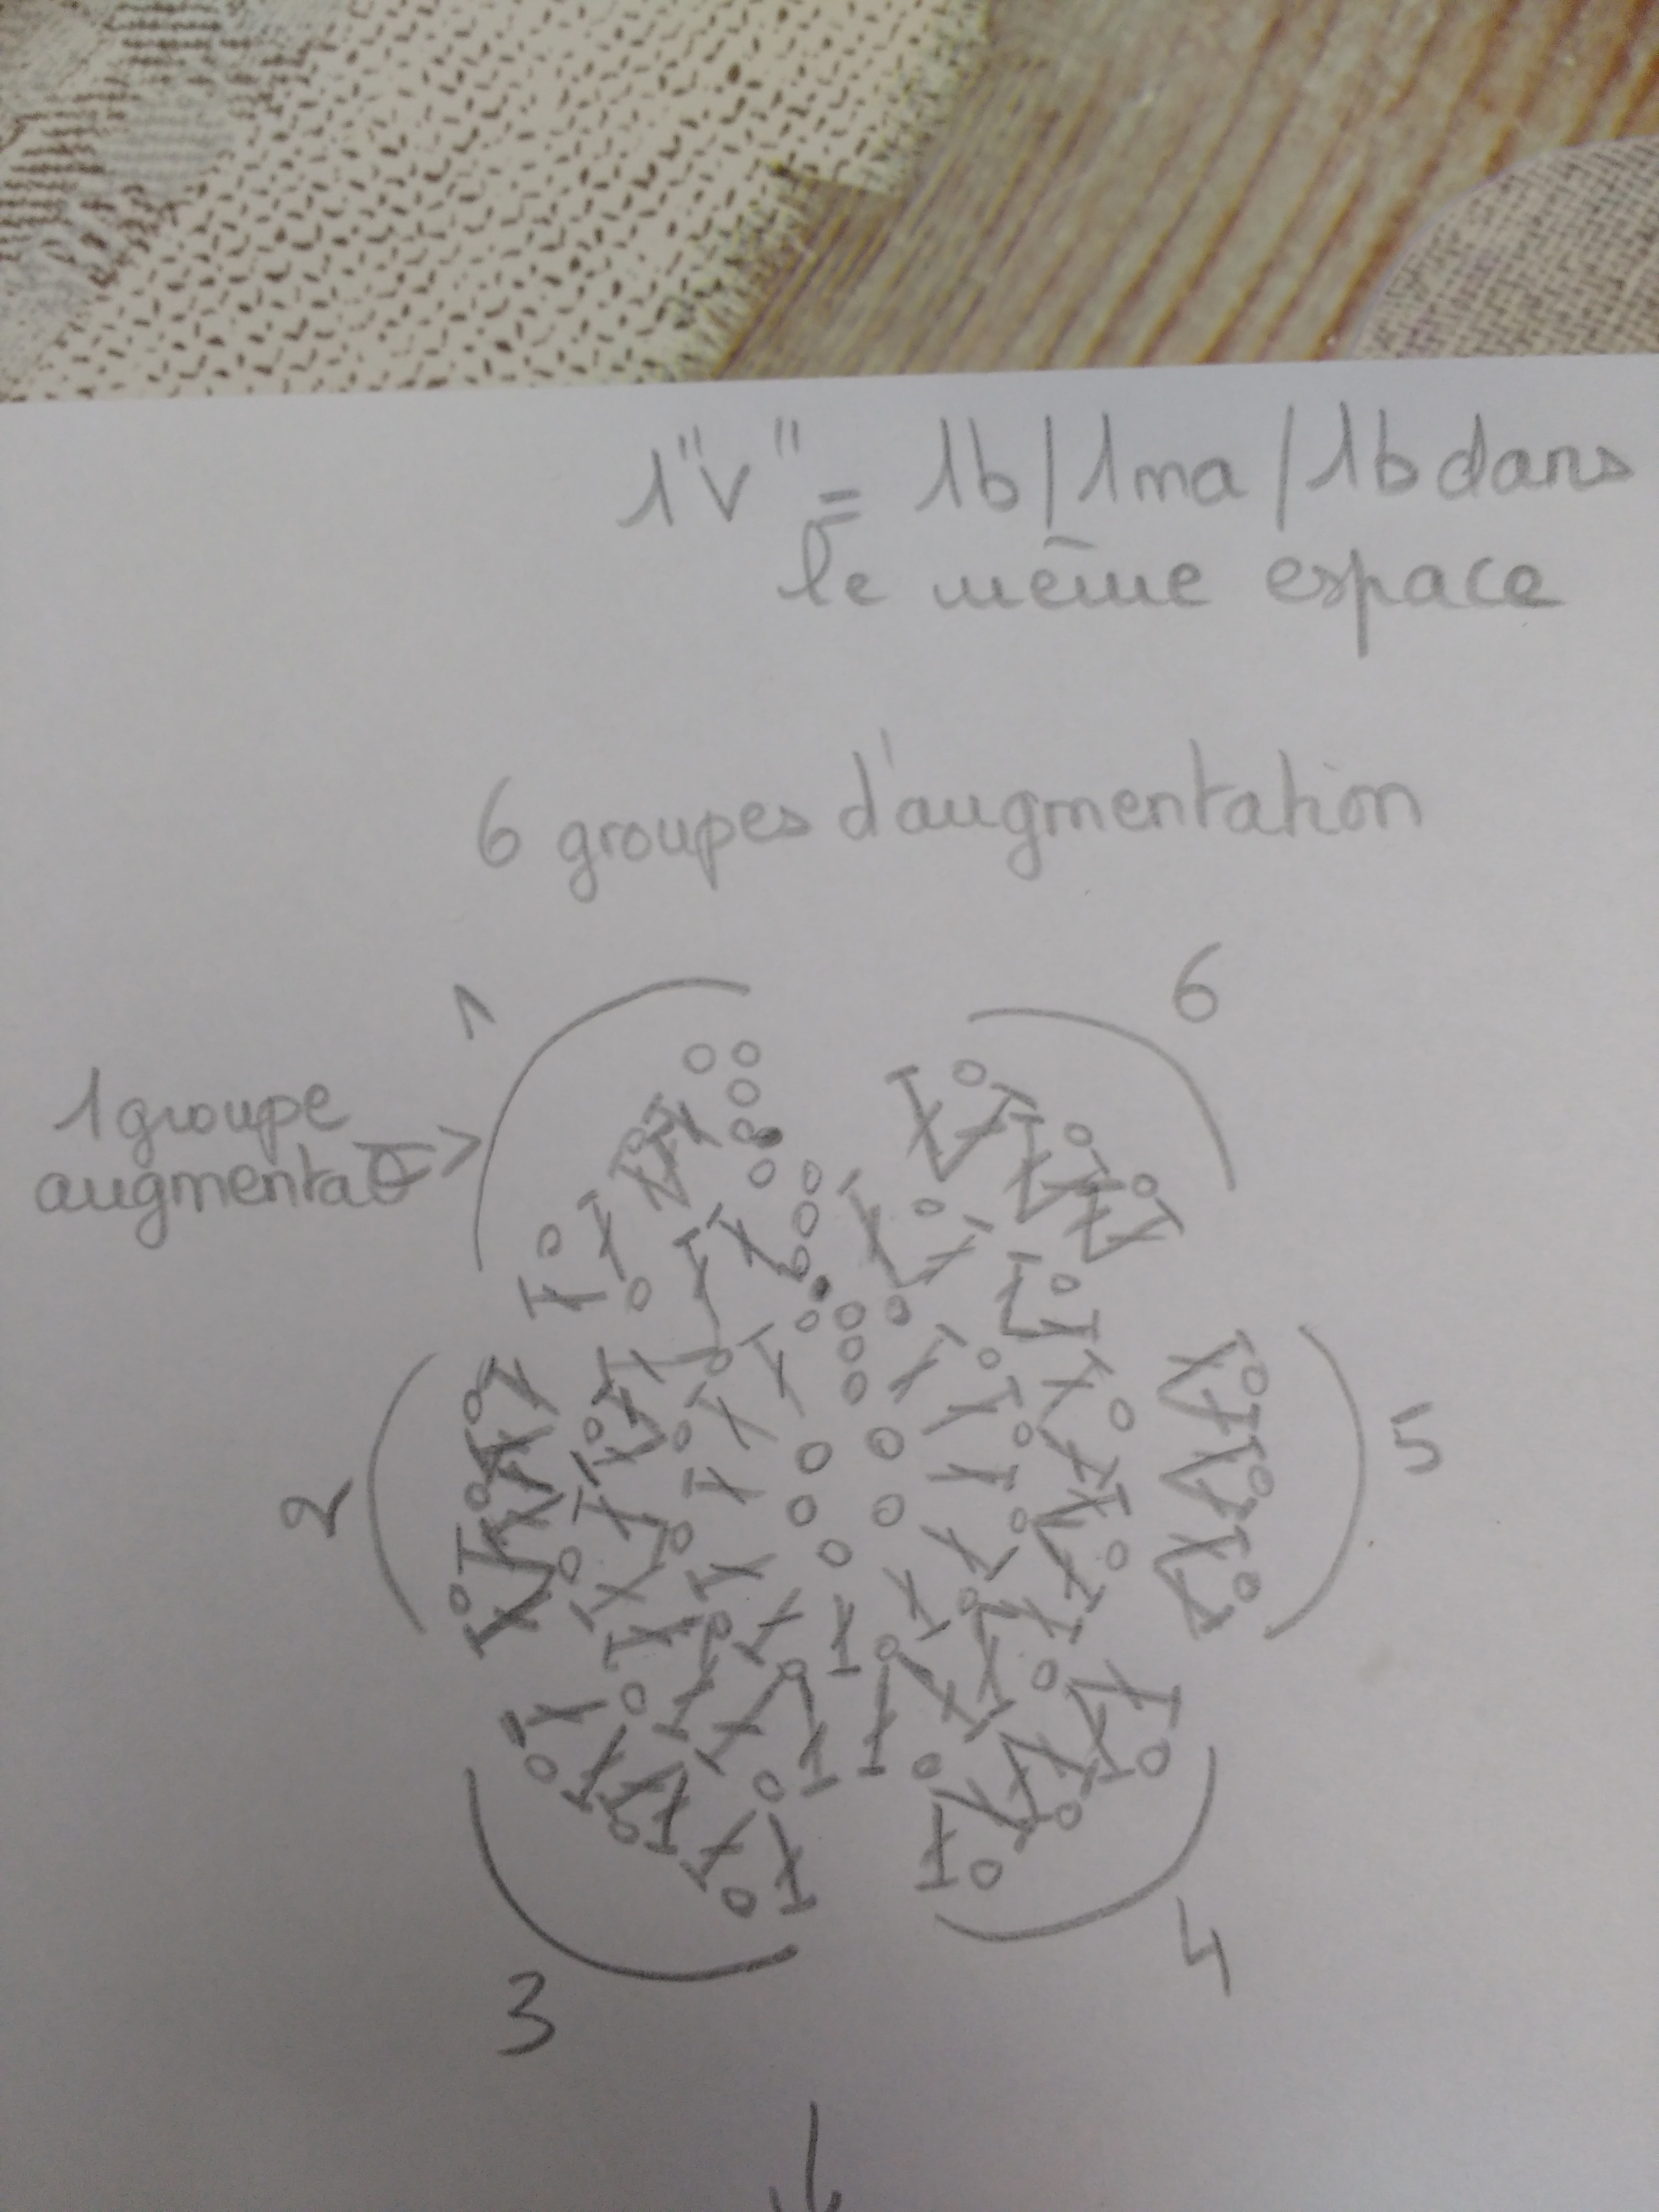 1"V" = 1b/1ma/1b dans
le même espace
6 groupes d'augmentation
1
6
1 groupe
augmentat°
2
5
3
4